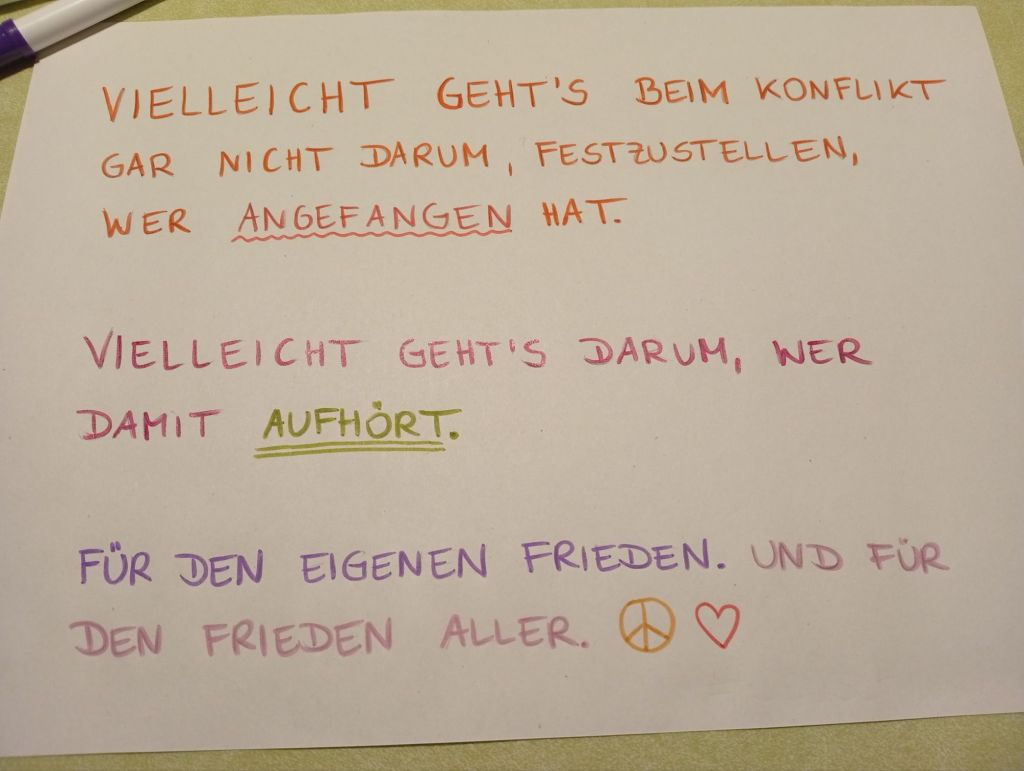 VIELLEICHT GEHT'S BEIM KONFLIKT
GAR NICHT DARUM, FESTZUSTELLEN,
WER ANGEFANGEN HAT.
VIELLEICHT GEHT'S DARUM, WER
DAMIT AUFHÖRT.
FÜR DEN EIGENEN FRIEDEN. UND FÜR
DEN FRIEDEN ALLER.